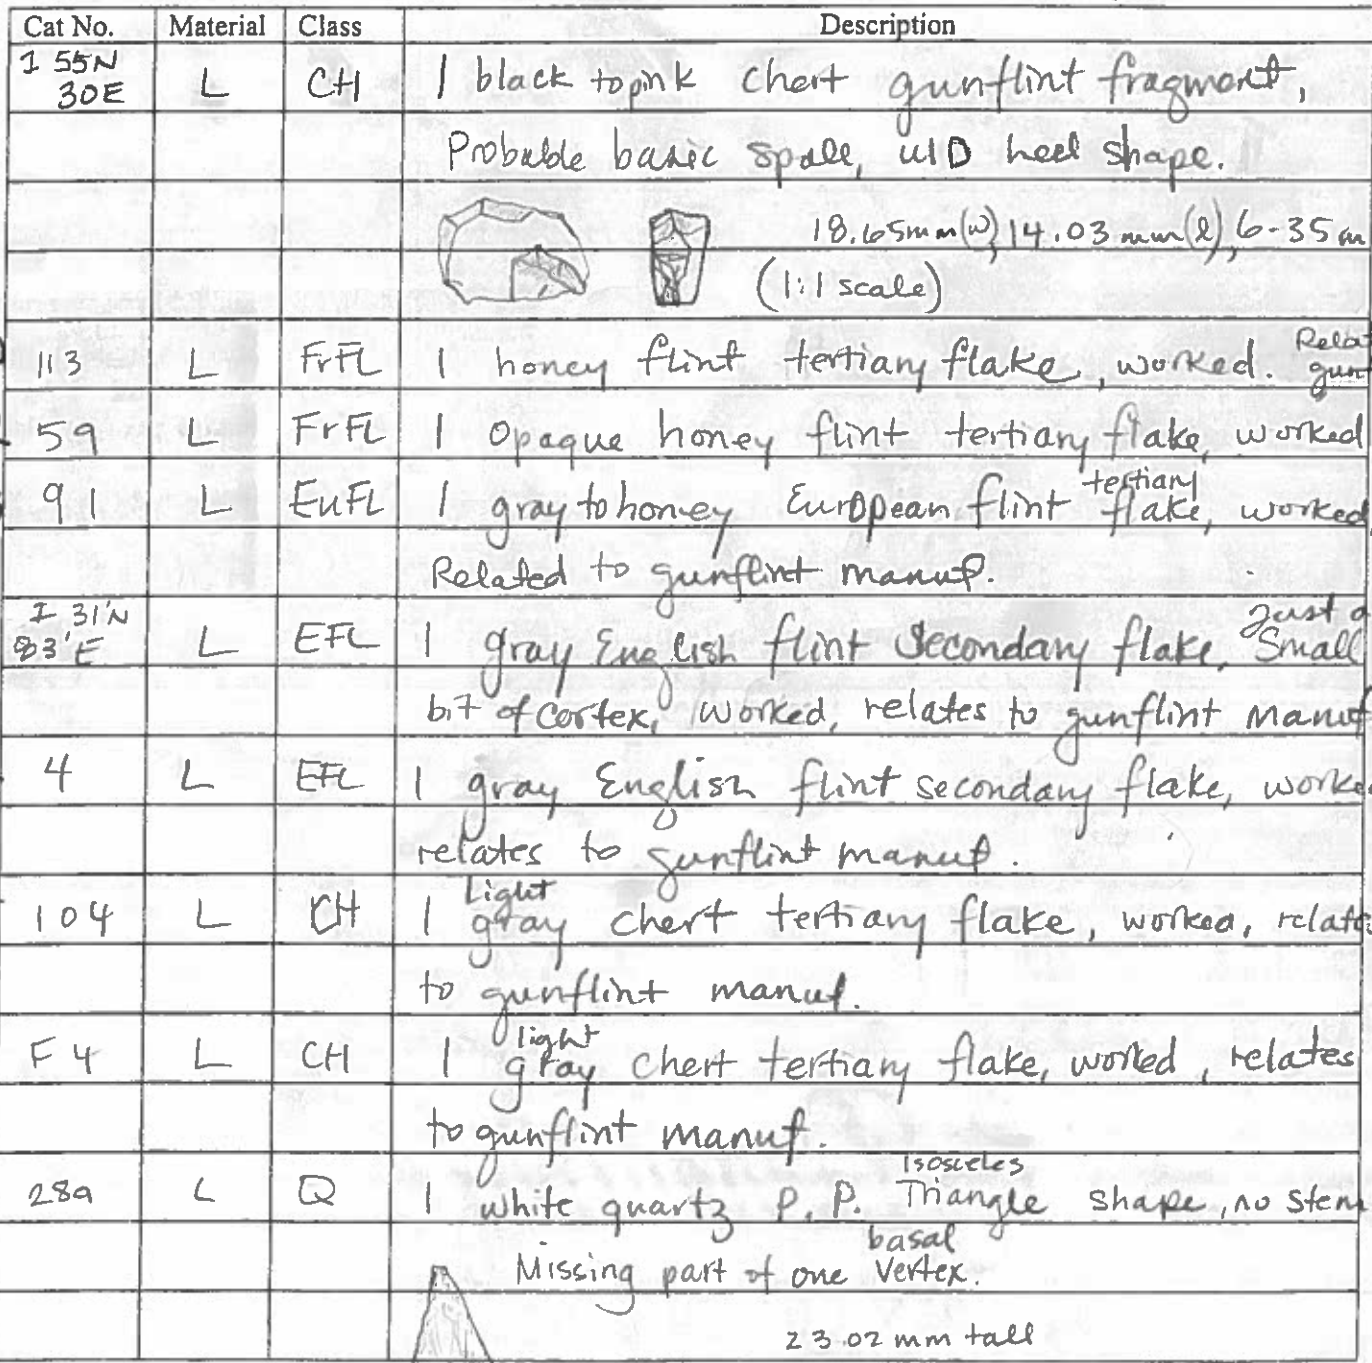 Cat No. Material Class Description
I 55N
30E L CH 1 black to pink chert gunflint fragment,
Probable basic spall, UID heel shape.
18.65mm(w), 14.03mm(l), 6.35m
(1:1 scale)
Relat
113 L FrFL 1 honey flint tertiary flake, worked. gunf
59 L FrFL 1 Opaque honey flint tertiary flake, worked
tertiary
91 L EuFL 1 gray to honey European flint flake, worked
Related to gunflint manuf.
I 31'N Just a
83'E L EFL 1 gray English flint Secondary flake. Small
bit of cortex, worked, relates to gunflint manuf
4 L EFL 1 gray English flint secondary flake, worke
relates to gunflint manuf.
Light
104 L CH 1 gray chert tertiary flake, worked, relate
to gunflint manuf.
light
F4 L CH 1 gray chert tertiary flake, worked, relates
to gunflint manuf.
Isosceles
28a L Q 1 white quartz P.P. Triangle shape, no stem
basal
Missing part of one Vertex.
23.02 mm tall